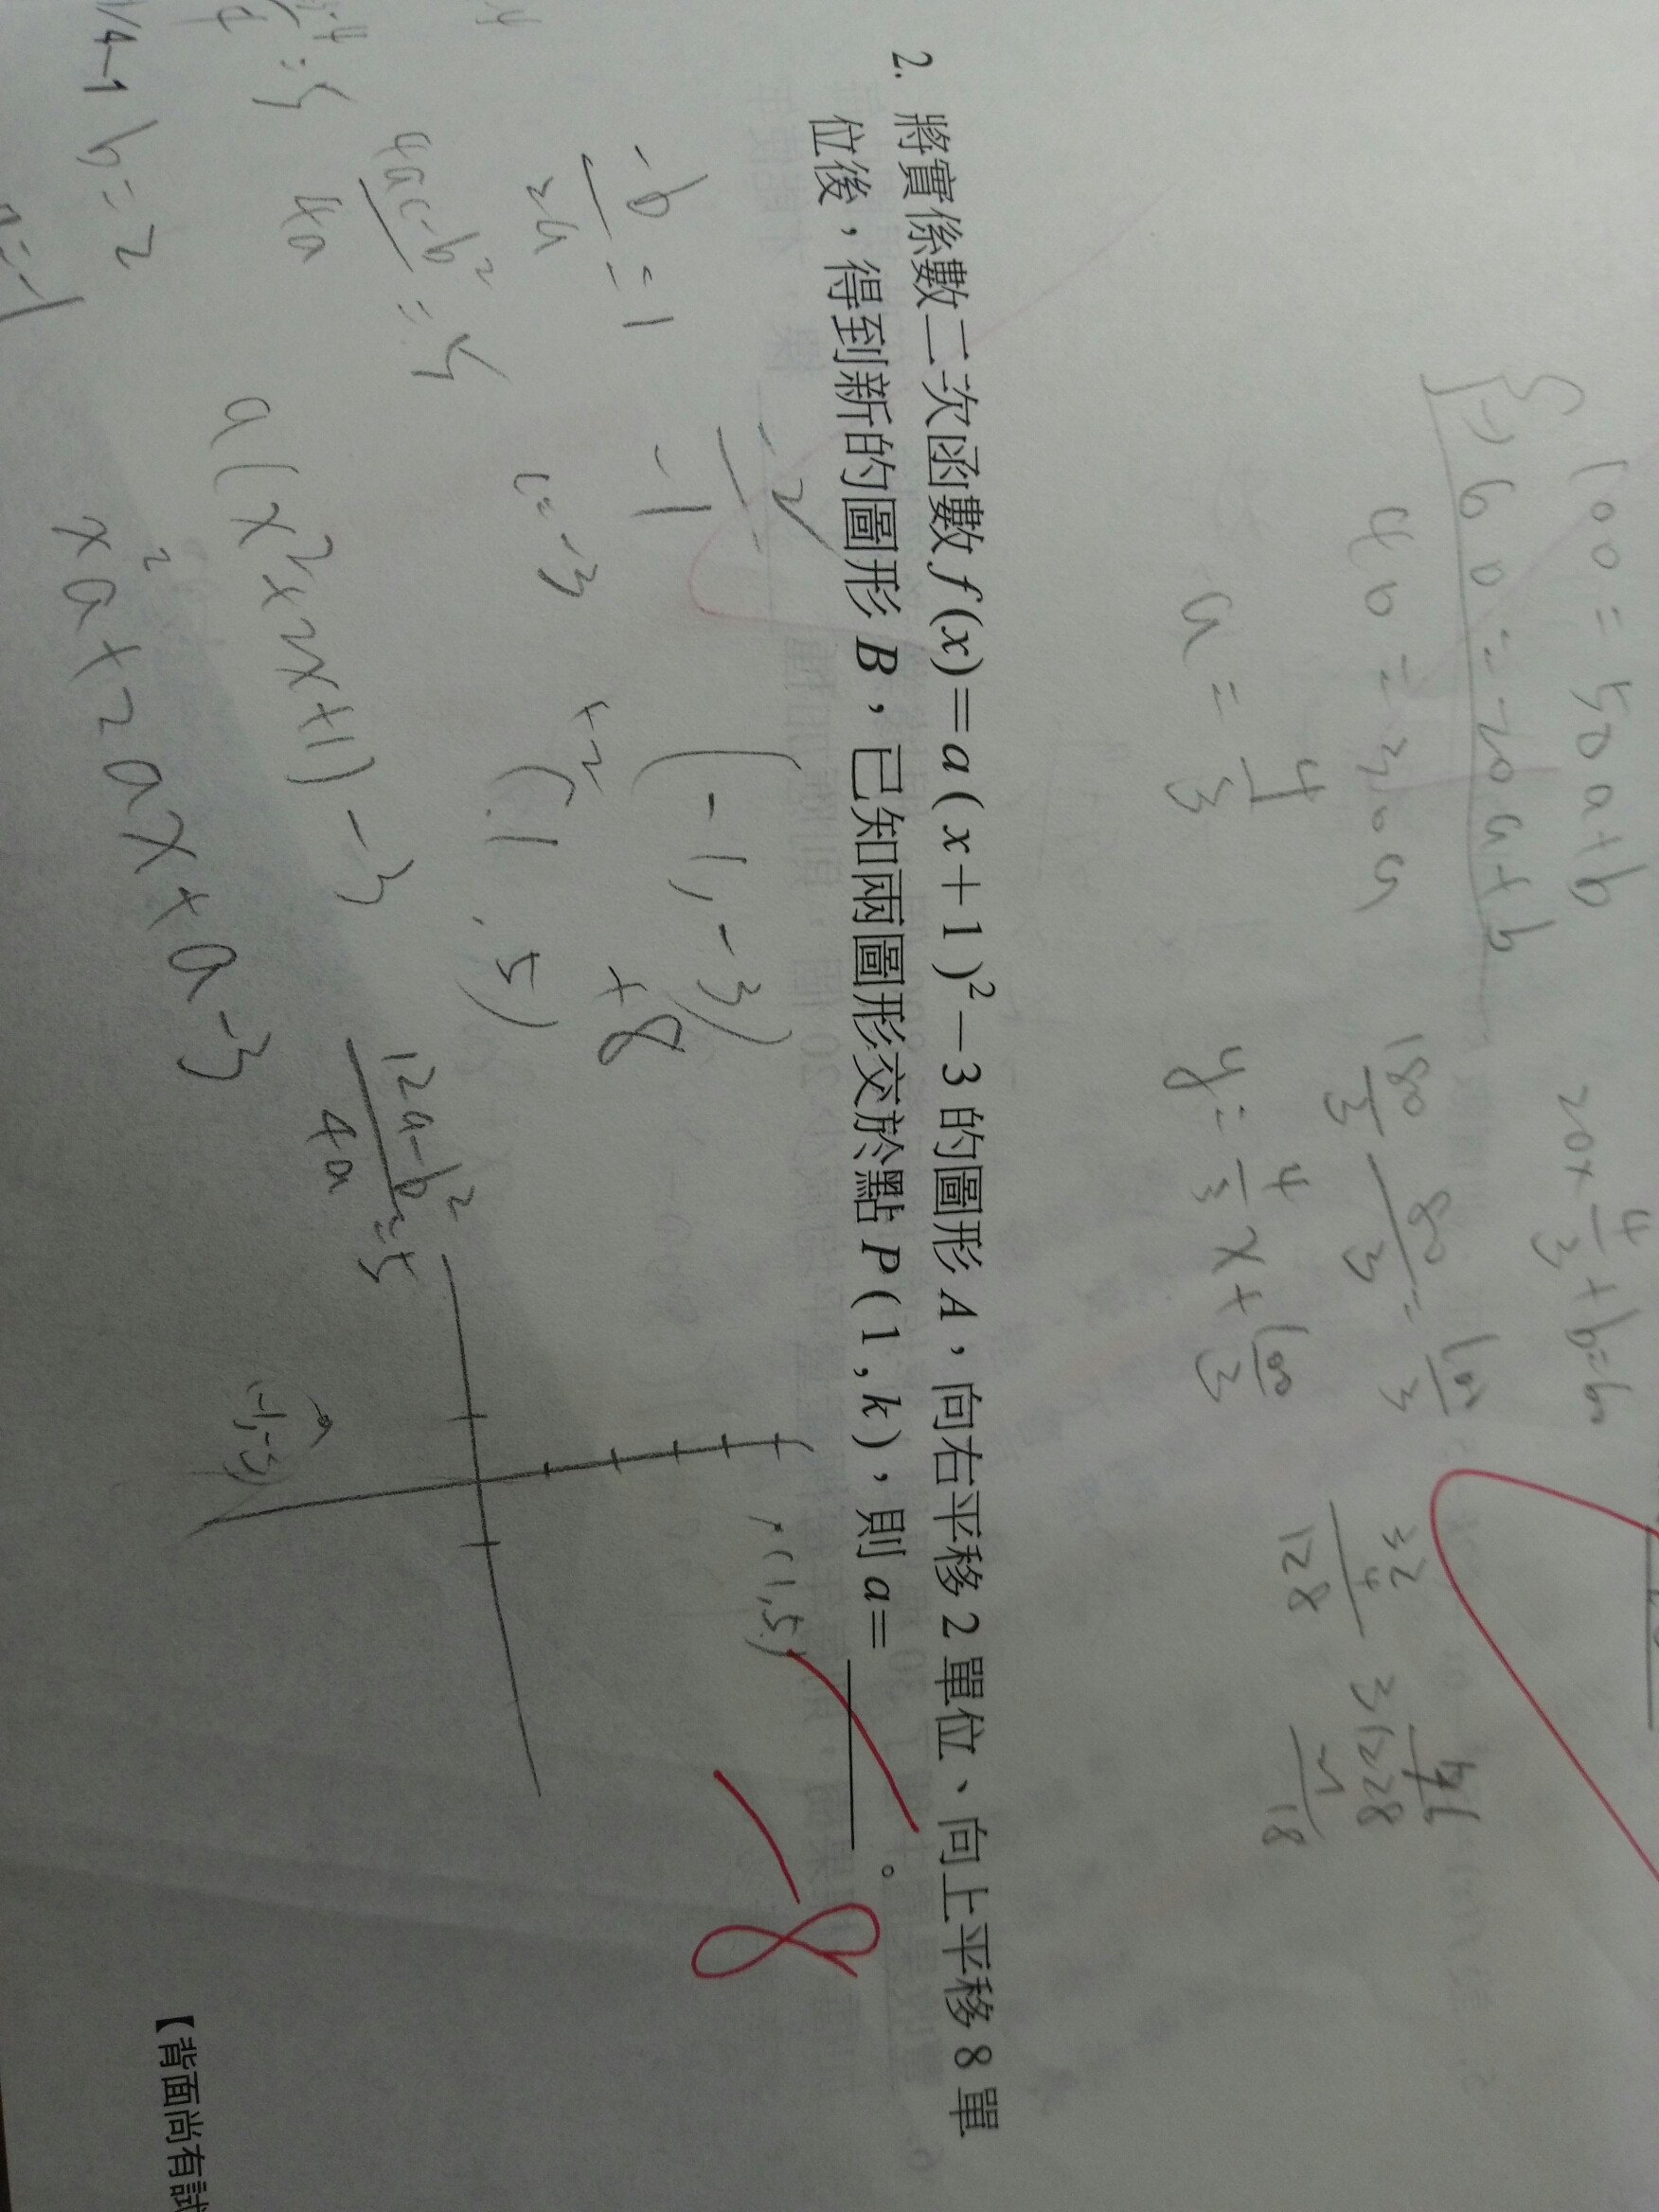 100=50a+b
-) 60=20a+b
40=30a
a=4/3
20×4/3+b=60
180/3-80/3=100/3
y=4/3x+100/3
2. 將實係數二次函數 f(x)=a(x+1)²-3 的圖形 A，向右平移 2 單位、向上平移 8 單
位後，得到新的圖形 B，已知兩圖形交於點 P(1,k)，則 a=＿＿＿。
-8
-2
-1
(-1,-3)
+2 +8
(1,5)
-b/2a=1
c=-3
(4ac-b²)/4a=5
a(x²+2x+1)-3
x²a+2ax+a-3
(12a-b²)/4a=5
(1,5)
(-1,-3)
b=2
【背面尚有試